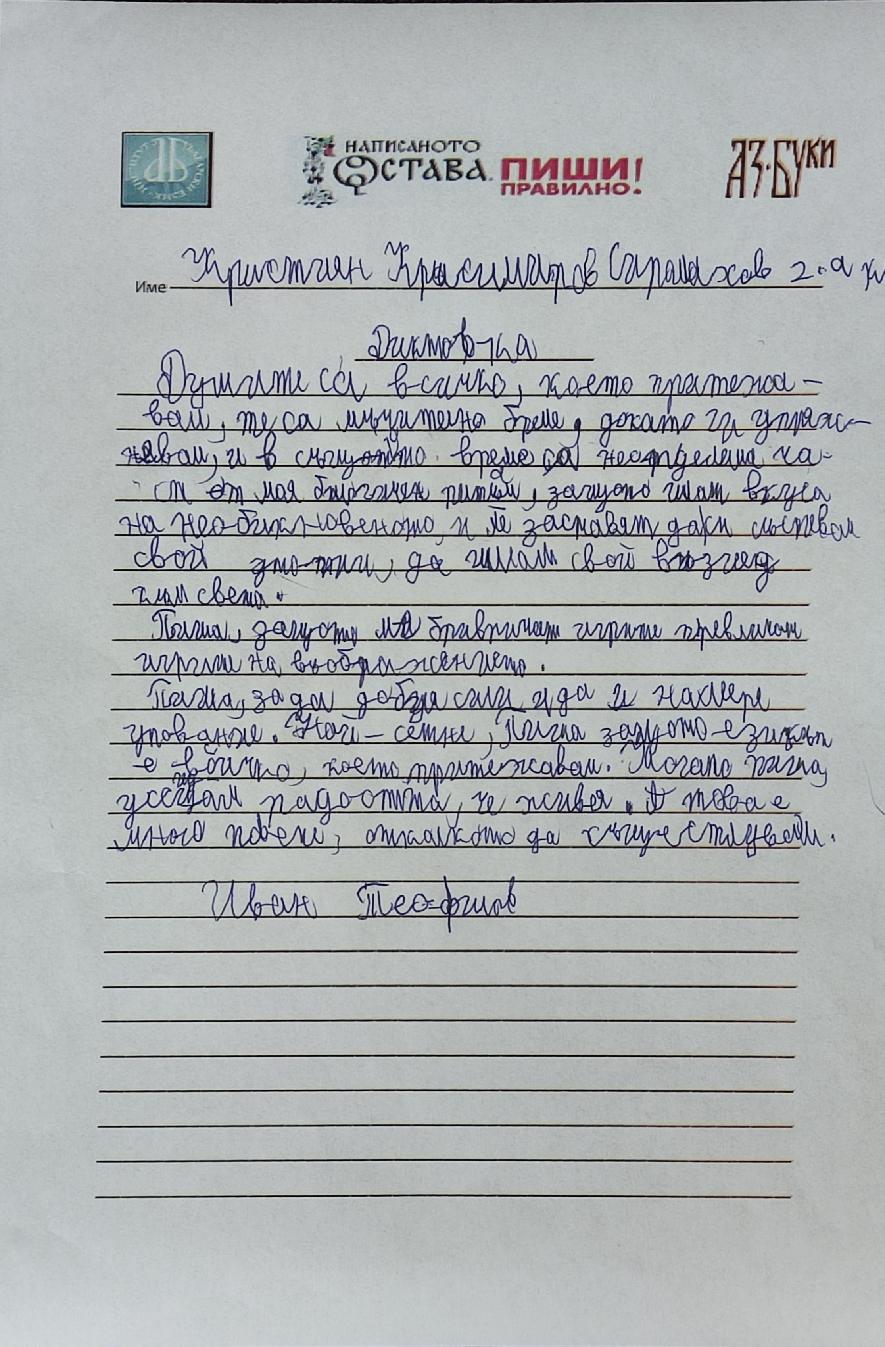 НАПИСАНОТО
ОСТАВА. ПИШИ!
ПРАВИЛНО!
АЗ-БУКИ
Име Кристиян Красимиров 2. а
Диктовка
Думите са всичко, което притежа-
вам, те са мъчително бреме, докато ги упраж-
нявам, и в същото време са неотделима ча-
ст от моя биологичен ритъм, защото имат вкуса
на необикновеното, и ме заставят да
свой да имам свой възглед
към света.
Пиша, защото ме игрите
игрите на въображението.
Пиша, за да си и да и намеря
упование. Най-сетне, Пиша защото езикът
е всичко, което притежавам. Могато пиша,
усещам радостта, че живея. А това е
много повече, отколкото да съществувам.
Иван Теофилов